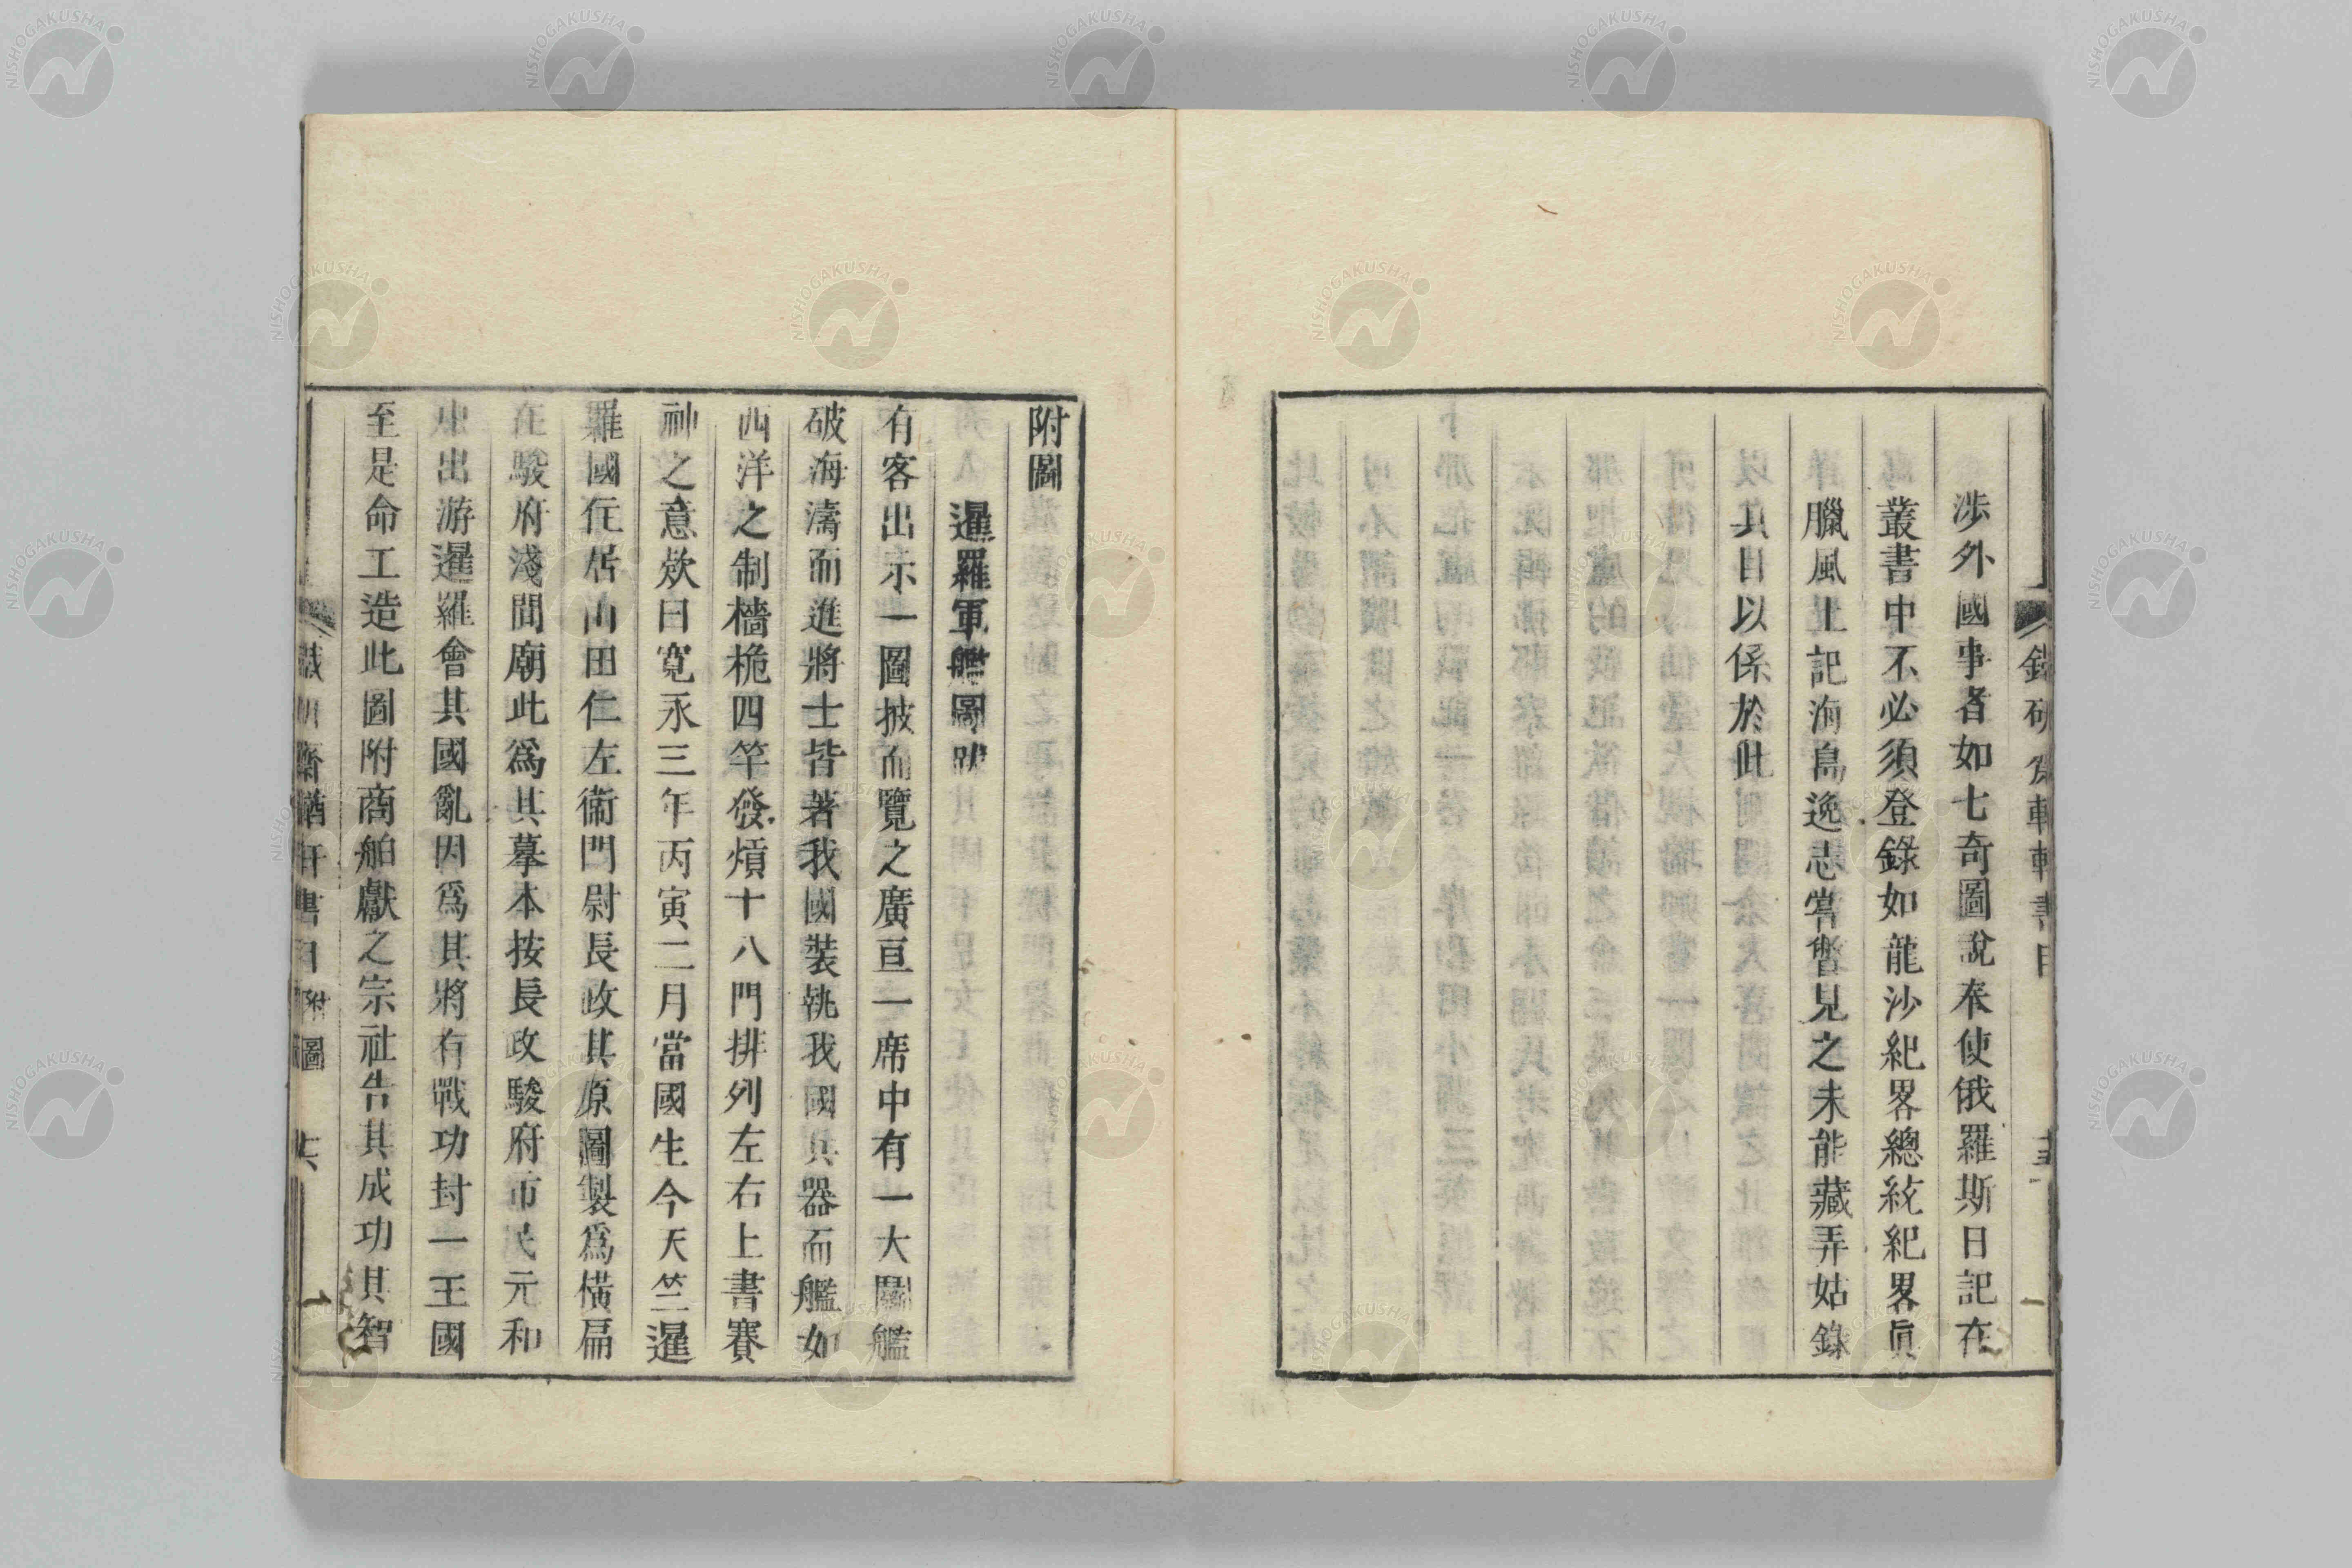 涉外國事者如七奇圖說奉使俄羅斯日記在
叢書中不必須登錄如龍沙紀畧總統紀畧眞
臘風土記海島逸志嘗暫見之未能藏弆姑錄
其目以係於此
附圖
暹羅軍艦圖跋
有客出示一圖披而覽之廣亘一席中有一大鬪艦
破海濤而進將士皆著我國裝執我國兵器而艦如
西洋之制檣桅四竿發熕十八門排列左右上書賽
神之意欸曰寬永三年丙寅二月當國生今天竺暹
羅國住居山田仁左衞門尉長政其原圖製爲橫扁
在駿府淺間廟此爲其摹本按長政駿府市民元和
出游暹羅會其國亂因爲其將有戰功封一王國
至是命工造此圖附商舶獻之宗社告其成功其智